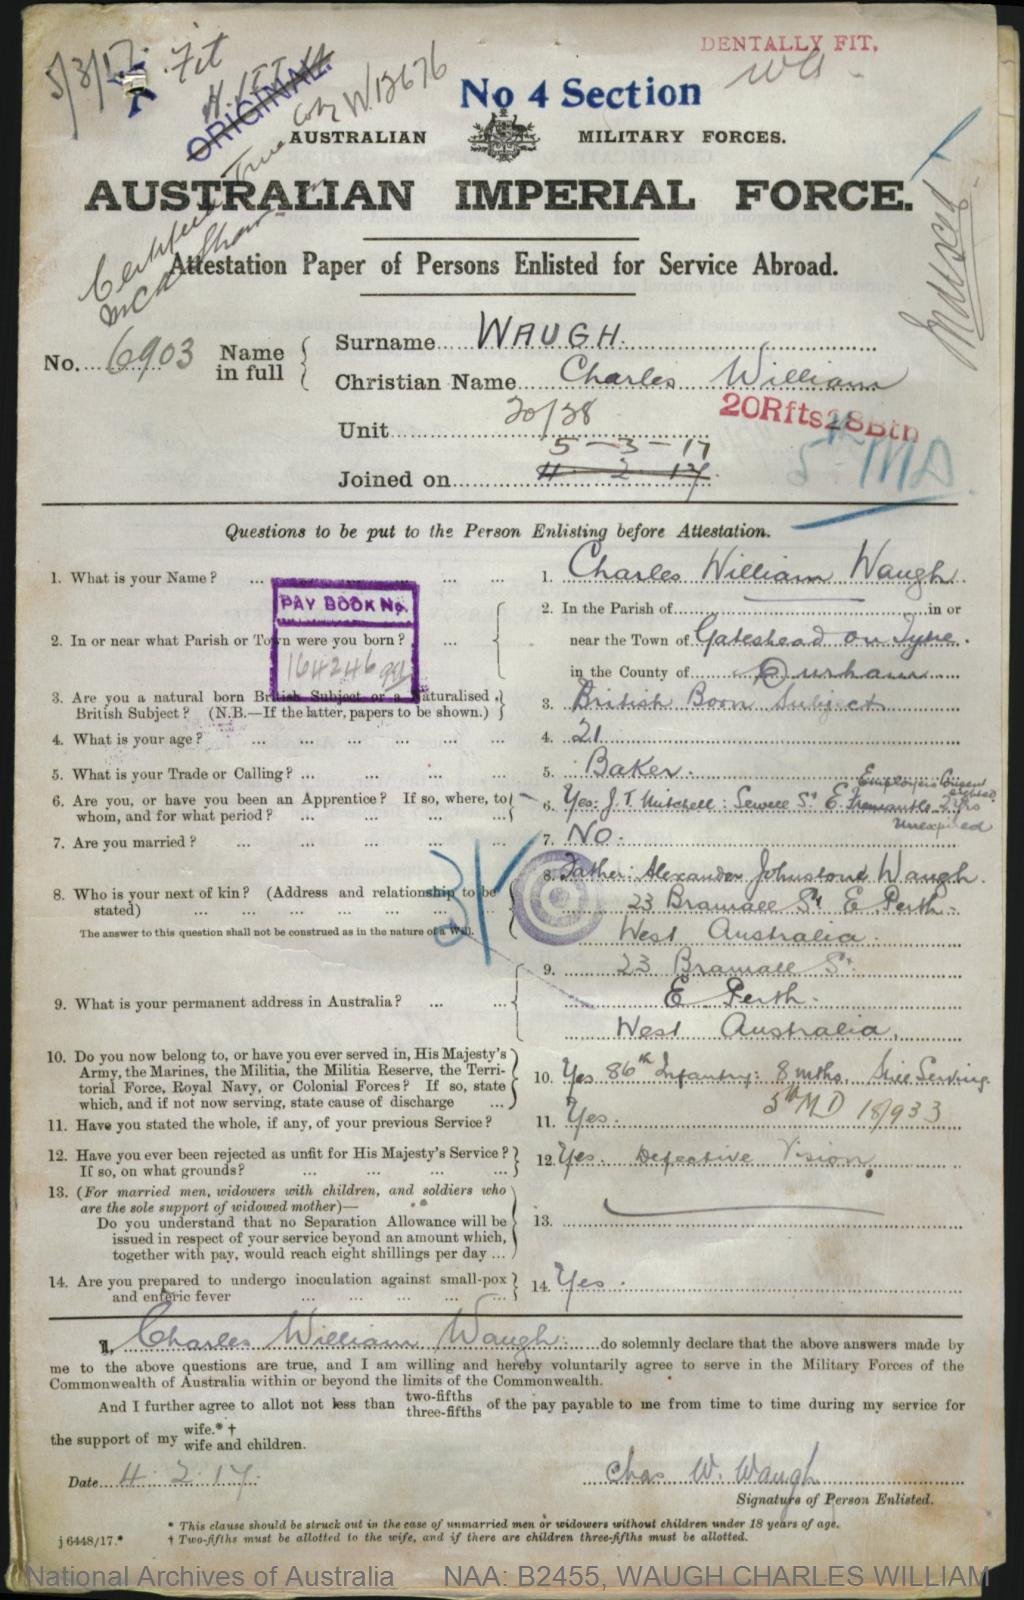 5/3/17. Fit
DENTALLY FIT.
ORIGINAL.
No 4 Section
W13676
Certified True Copy
AUSTRALIAN MILITARY FORCES.
AUSTRALIAN IMPERIAL FORCE.
Indexed
Attestation Paper of Persons Enlisted for Service Abroad.
No. 6903 Name in full
Surname WAUGH.
Christian Name Charles William
20Rfts28Btn
Unit 20/28
5th MD.
5-3-17
Joined on 4 2 17.
Questions to be put to the Person Enlisting before Attestation.
1. What is your Name? ... ... ... 1. Charles William Waugh.
PAY BOOK No.
164246
2. In or near what Parish or Town were you born? ... 2. In the Parish of in or
near the Town of Gateshead on Tyne.
in the County of Durham
3. Are you a natural born British Subject or a Naturalised British Subject? (N.B.—If the latter, papers to be shown.) 3. British Born Subject
4. What is your age? ... ... ... ... ... ... 4. 21
5. What is your Trade or Calling? ... ... ... ... 5. Baker.
Employers Consent
6. Are you, or have you been an Apprentice? If so, where, to 6. Yes: J. T. Mitchell: Sewell St E. Fremantle. 2 yrs
whom, and for what period? ... ... ... ... Unexpired
7. Are you married? ... ... ... ... ... ... 7. No.
8. Who is your next of kin? (Address and relationship to be 8. Father: Alexander Johnstone Waugh.
stated) ... ... ... ... ... ... 23 Bramall St E. Perth.
The answer to this question shall not be construed as in the nature of a Will. West Australia.
9. 23 Bramall St
9. What is your permanent address in Australia? ... ... E Perth.
West Australia.
10. Do you now belong to, or have you ever served in, His Majesty's
Army, the Marines, the Militia, the Militia Reserve, the Terri- 10. Yes 86th Infantry: 8 mths. Still Serving.
torial Force, Royal Navy, or Colonial Forces? If so, state
which, and if not now serving, state cause of discharge ... 5th MD 18/933
11. Have you stated the whole, if any, of your previous Service? 11. Yes.
12. Have you ever been rejected as unfit for His Majesty's Service? 12. Yes. Defective Vision.
If so, on what grounds? ... ... ... ...
13. (For married men, widowers with children, and soldiers who
are the sole support of widowed mother)—
Do you understand that no Separation Allowance will be 13.
issued in respect of your service beyond an amount which,
together with pay, would reach eight shillings per day ...
14. Are you prepared to undergo inoculation against small-pox 14. Yes.
and enteric fever ... ... ... ... ...
I, Charles William Waugh do solemnly declare that the above answers made by
me to the above questions are true, and I am willing and hereby voluntarily agree to serve in the Military Forces of the
Commonwealth of Australia within or beyond the limits of the Commonwealth.
And I further agree to allot not less than two-fifths three-fifths of the pay payable to me from time to time during my service for
the support of my wife.*† wife and children.
Date 4. 2. 17. Chas W. Waugh
Signature of Person Enlisted.
* This clause should be struck out in the case of unmarried men or widowers without children under 18 years of age.
j 6448/17.* † Two-fifths must be allotted to the wife, and if there are children three-fifths must be allotted.
National Archives of Australia NAA: B2455, WAUGH CHARLES WILLIAM